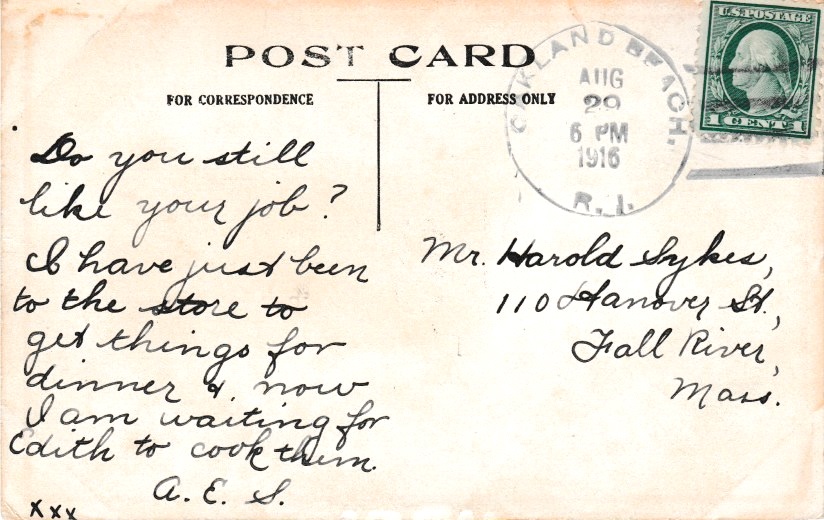 POST CARD
FOR CORRESPONDENCE
FOR ADDRESS ONLY
OAKLAND BEACH.
AUG
29
6 PM
1916
R.I.
U.S. POSTAGE
1 CENT 1
Do you still
like your job?
I have just been
to the store to
get things for
dinner & now
I am waiting for
Edith to cook them.
A. E. S.
xxx
Mr. Harold Sykes,
110 Hanover St.,
Fall River,
Mass.